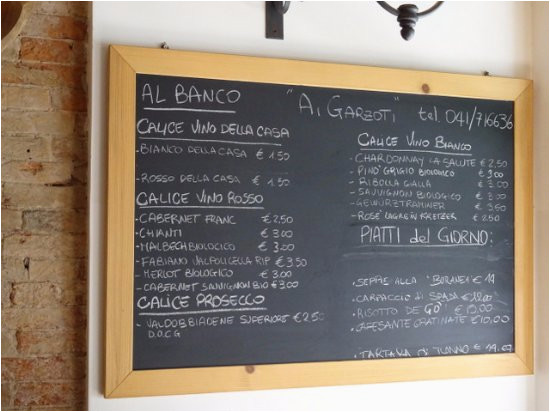 AL BANCO
"Ai GARZOTI" tel. 041/716636
CALICE VINO DELLA CASA
- BIANCO DELLA CASA € 1.50
- ROSSO DELLA CASA € 1.50
CALICE VINO ROSSO
- CABERNET FRANC € 2.50
- CHIANTI € 3.00
- MALBECH BIOLOGICO € 3.00
- FABIANO VALPOLICELLA RIP € 3.50
- MERLOT BIOLOGICO € 3.00
- CABERNET SAUVIGNON BIO € 3.00
CALICE PROSECCO
- VALDOBBIADENE SUPERIORE € 2.50
D.O.C.G
CALICE VINO BIANCO
- CHARDONNAY LA SALUTE € 2.50
- PINO' GRIGIO BIOLOGICO € 3.00
- RIBOLLA GIALLA € 3.00
- SAUVIGNON BIOLOGICO € 3.00
- GEWURZTRAMINER € 3.50
- ROSE' KREZER € 2.50
PIATTI del GIORNO:
- SEPPIE ALLA BURANEA € 14
- CARPACCIO DI SPADA € 12.00
- RISOTTO DE "GO" € 13.00
- CAPESANTE GRATINATE € 10.00
- TARTARA DI TONNO € 14.00